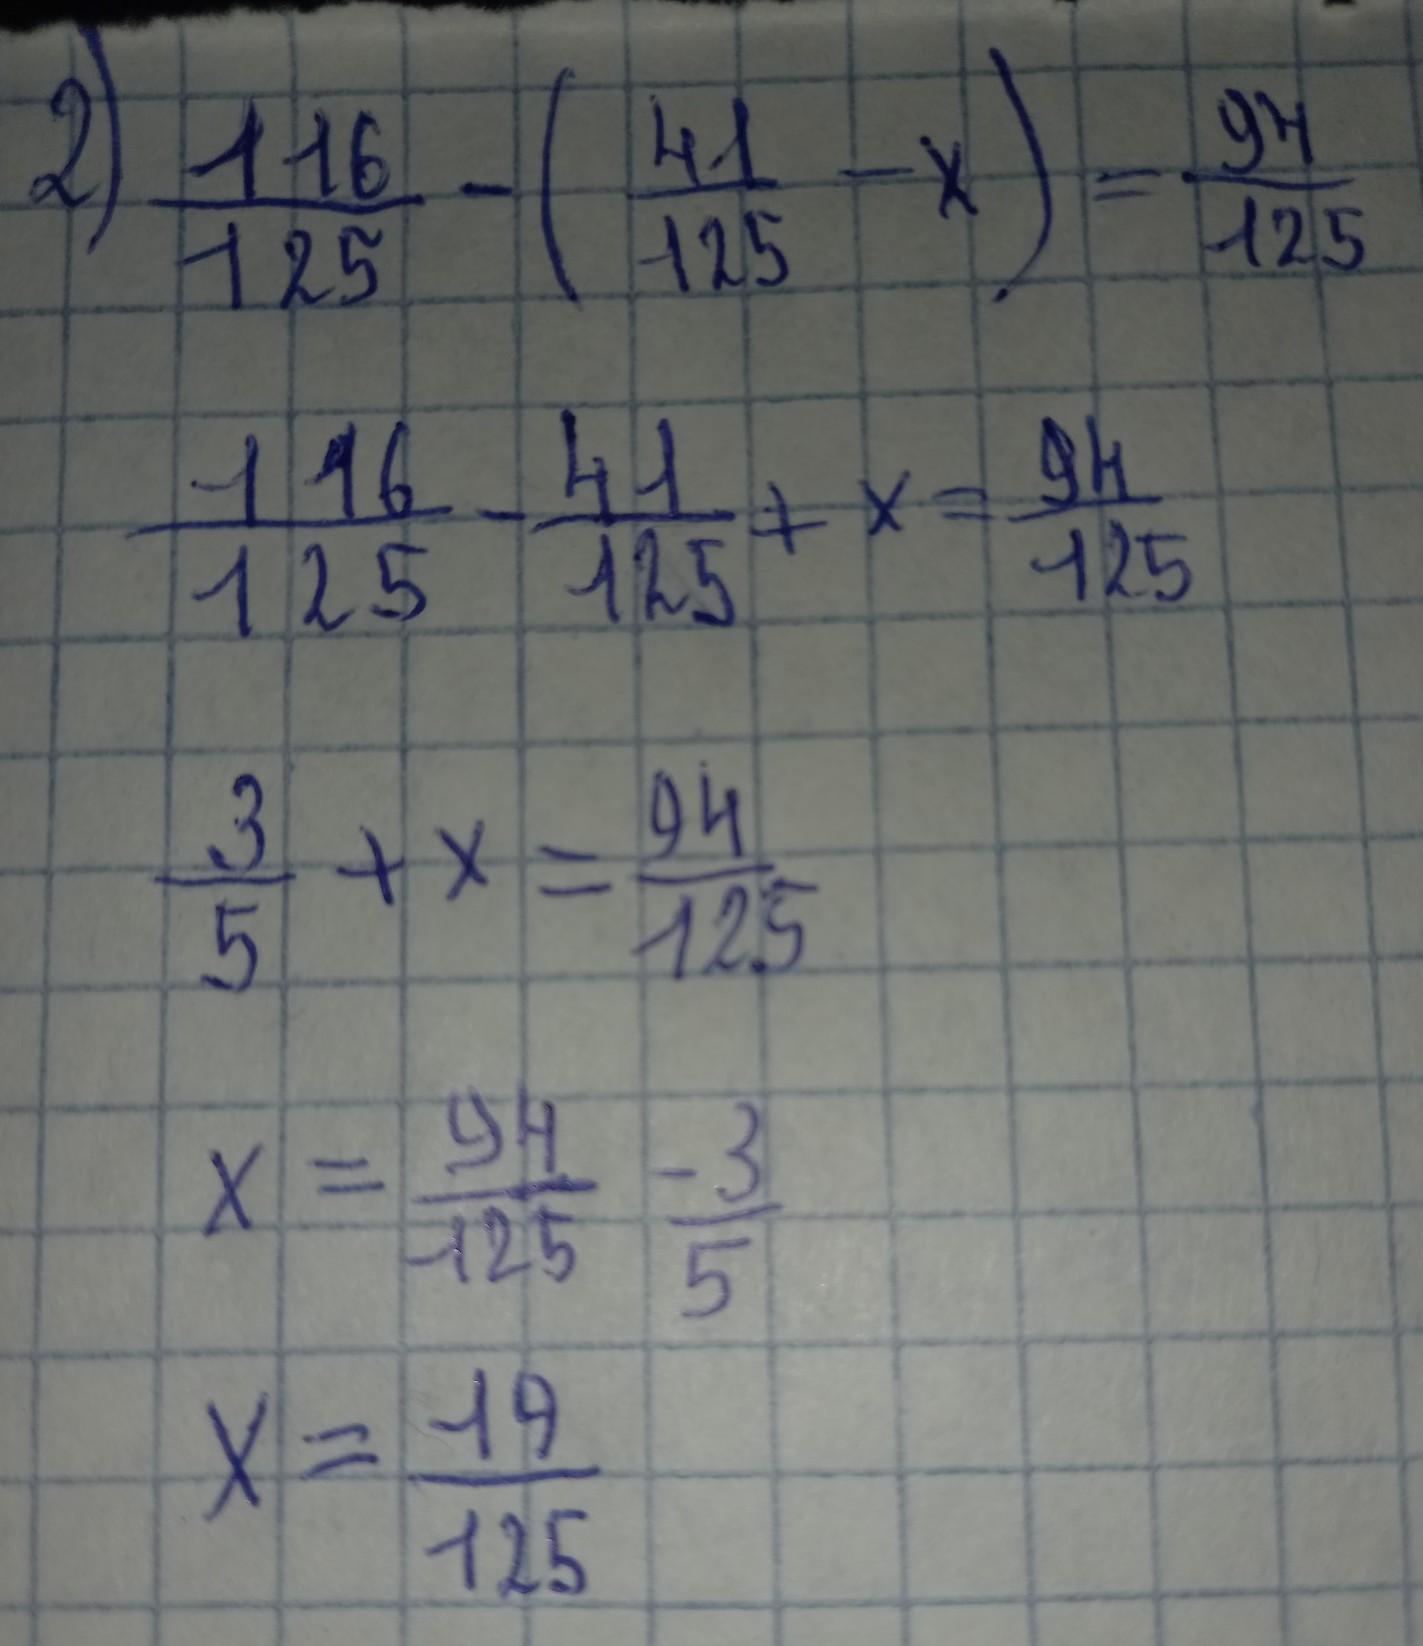 2) 116/125 - (41/125 - x) = 94/125
116/125 - 41/125 + x = 94/125
3/5 + x = 94/125
x = 94/125 - 3/5
x = 19/125